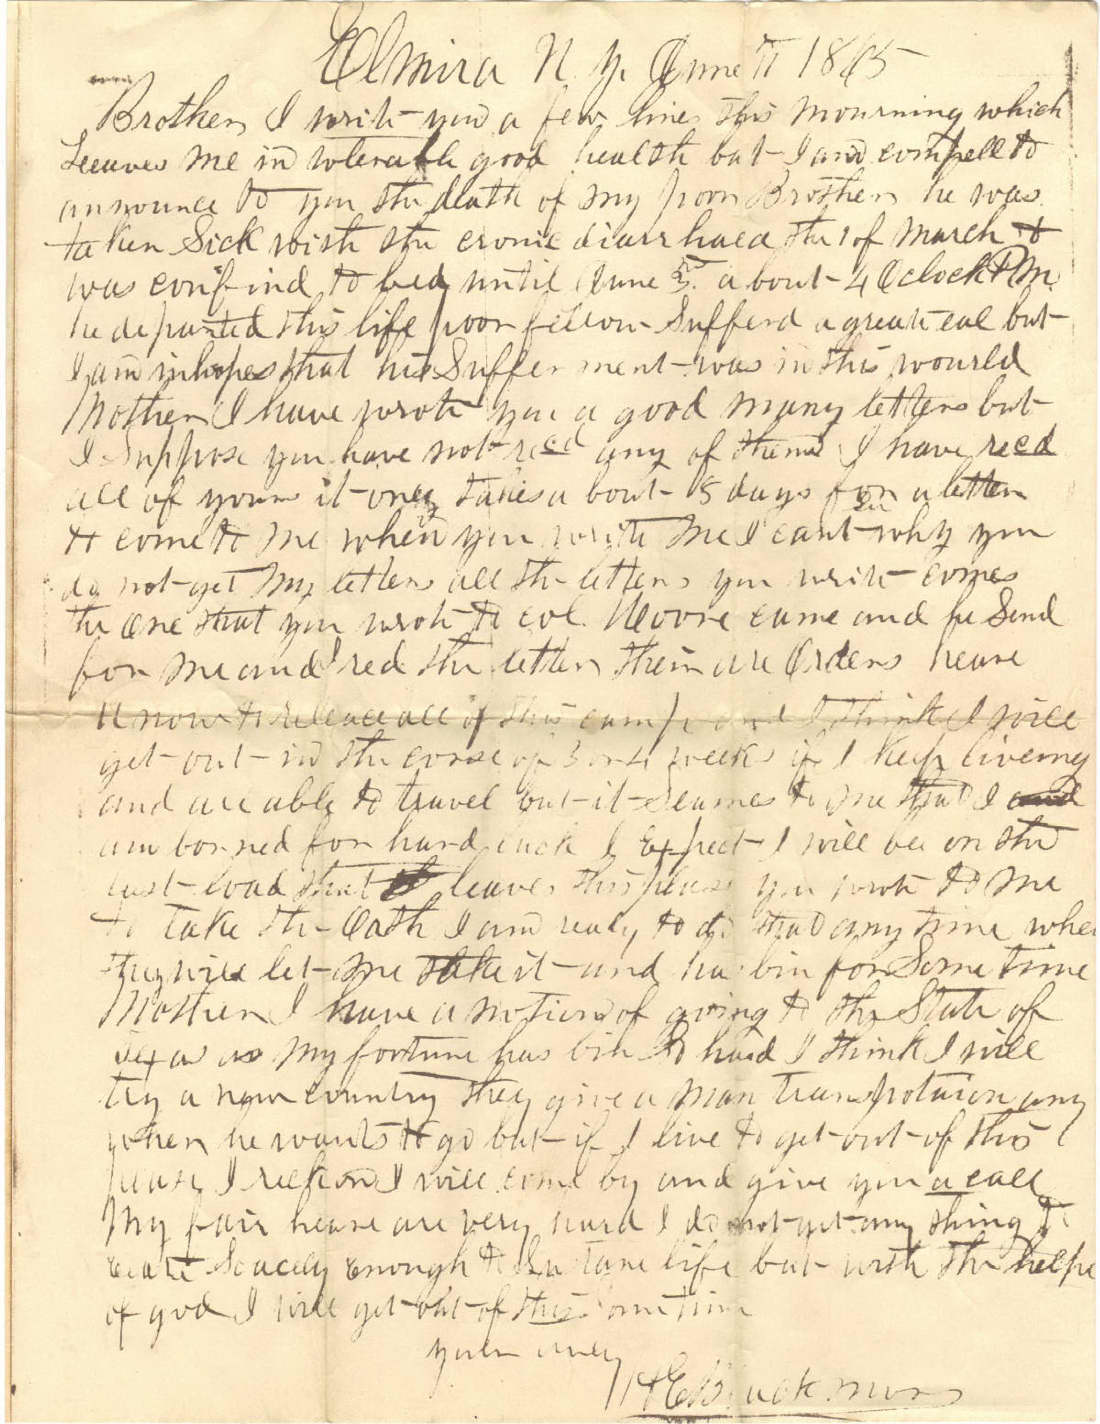 Elmira N. Y. June 11 1865
Brother I write you a few lines this mourning which
Leeaves me in tolerable good health but I am compell to
announce to you the death of my poor Brother he was
taken Sick with the cronic diarrhaea the 1 of March &
was confind to bed until June 5. about 4 Oclock P.M.
he departed this life poor fellow Sufferd a great eal but
I am in hopes that his Sufferment was in this wourld
Mother I have wrote you a good many letters but
I Suppose you have not recd any of them I have recd
all of yours it only takes a bout 5 days for a letter
to come to me when you write me I cant See why you
do not get my letters all the letters you write comes
the One that you wrote to Col. Moore came and he Send
for me and I red the letter their are Orders heare
know to releace all of this camp and I think I will
get out in the corse of 3 or 4 weeks if I keep liveing
and are able to travel but it Seames to me that I
am borned for hard luck I Expect I will be on the
last load that leaves this place you wrote to me
to take the Oath I am realy to do that any time when
they will let me take it and ha bin for Some time
Mother I have a notion of going to the State of
Texas as my fortune has bin to hard I think I will
try a new country they give a man transpotaion any
wher he wants to go but if I live to get out of this
please I reckon I will come by and give you a call
My fair heare are very hard I do not get any thing to
eate Scacely enough to Sustane life but with the helpe
of god I will get out of this Some time
your
H E Blackmon